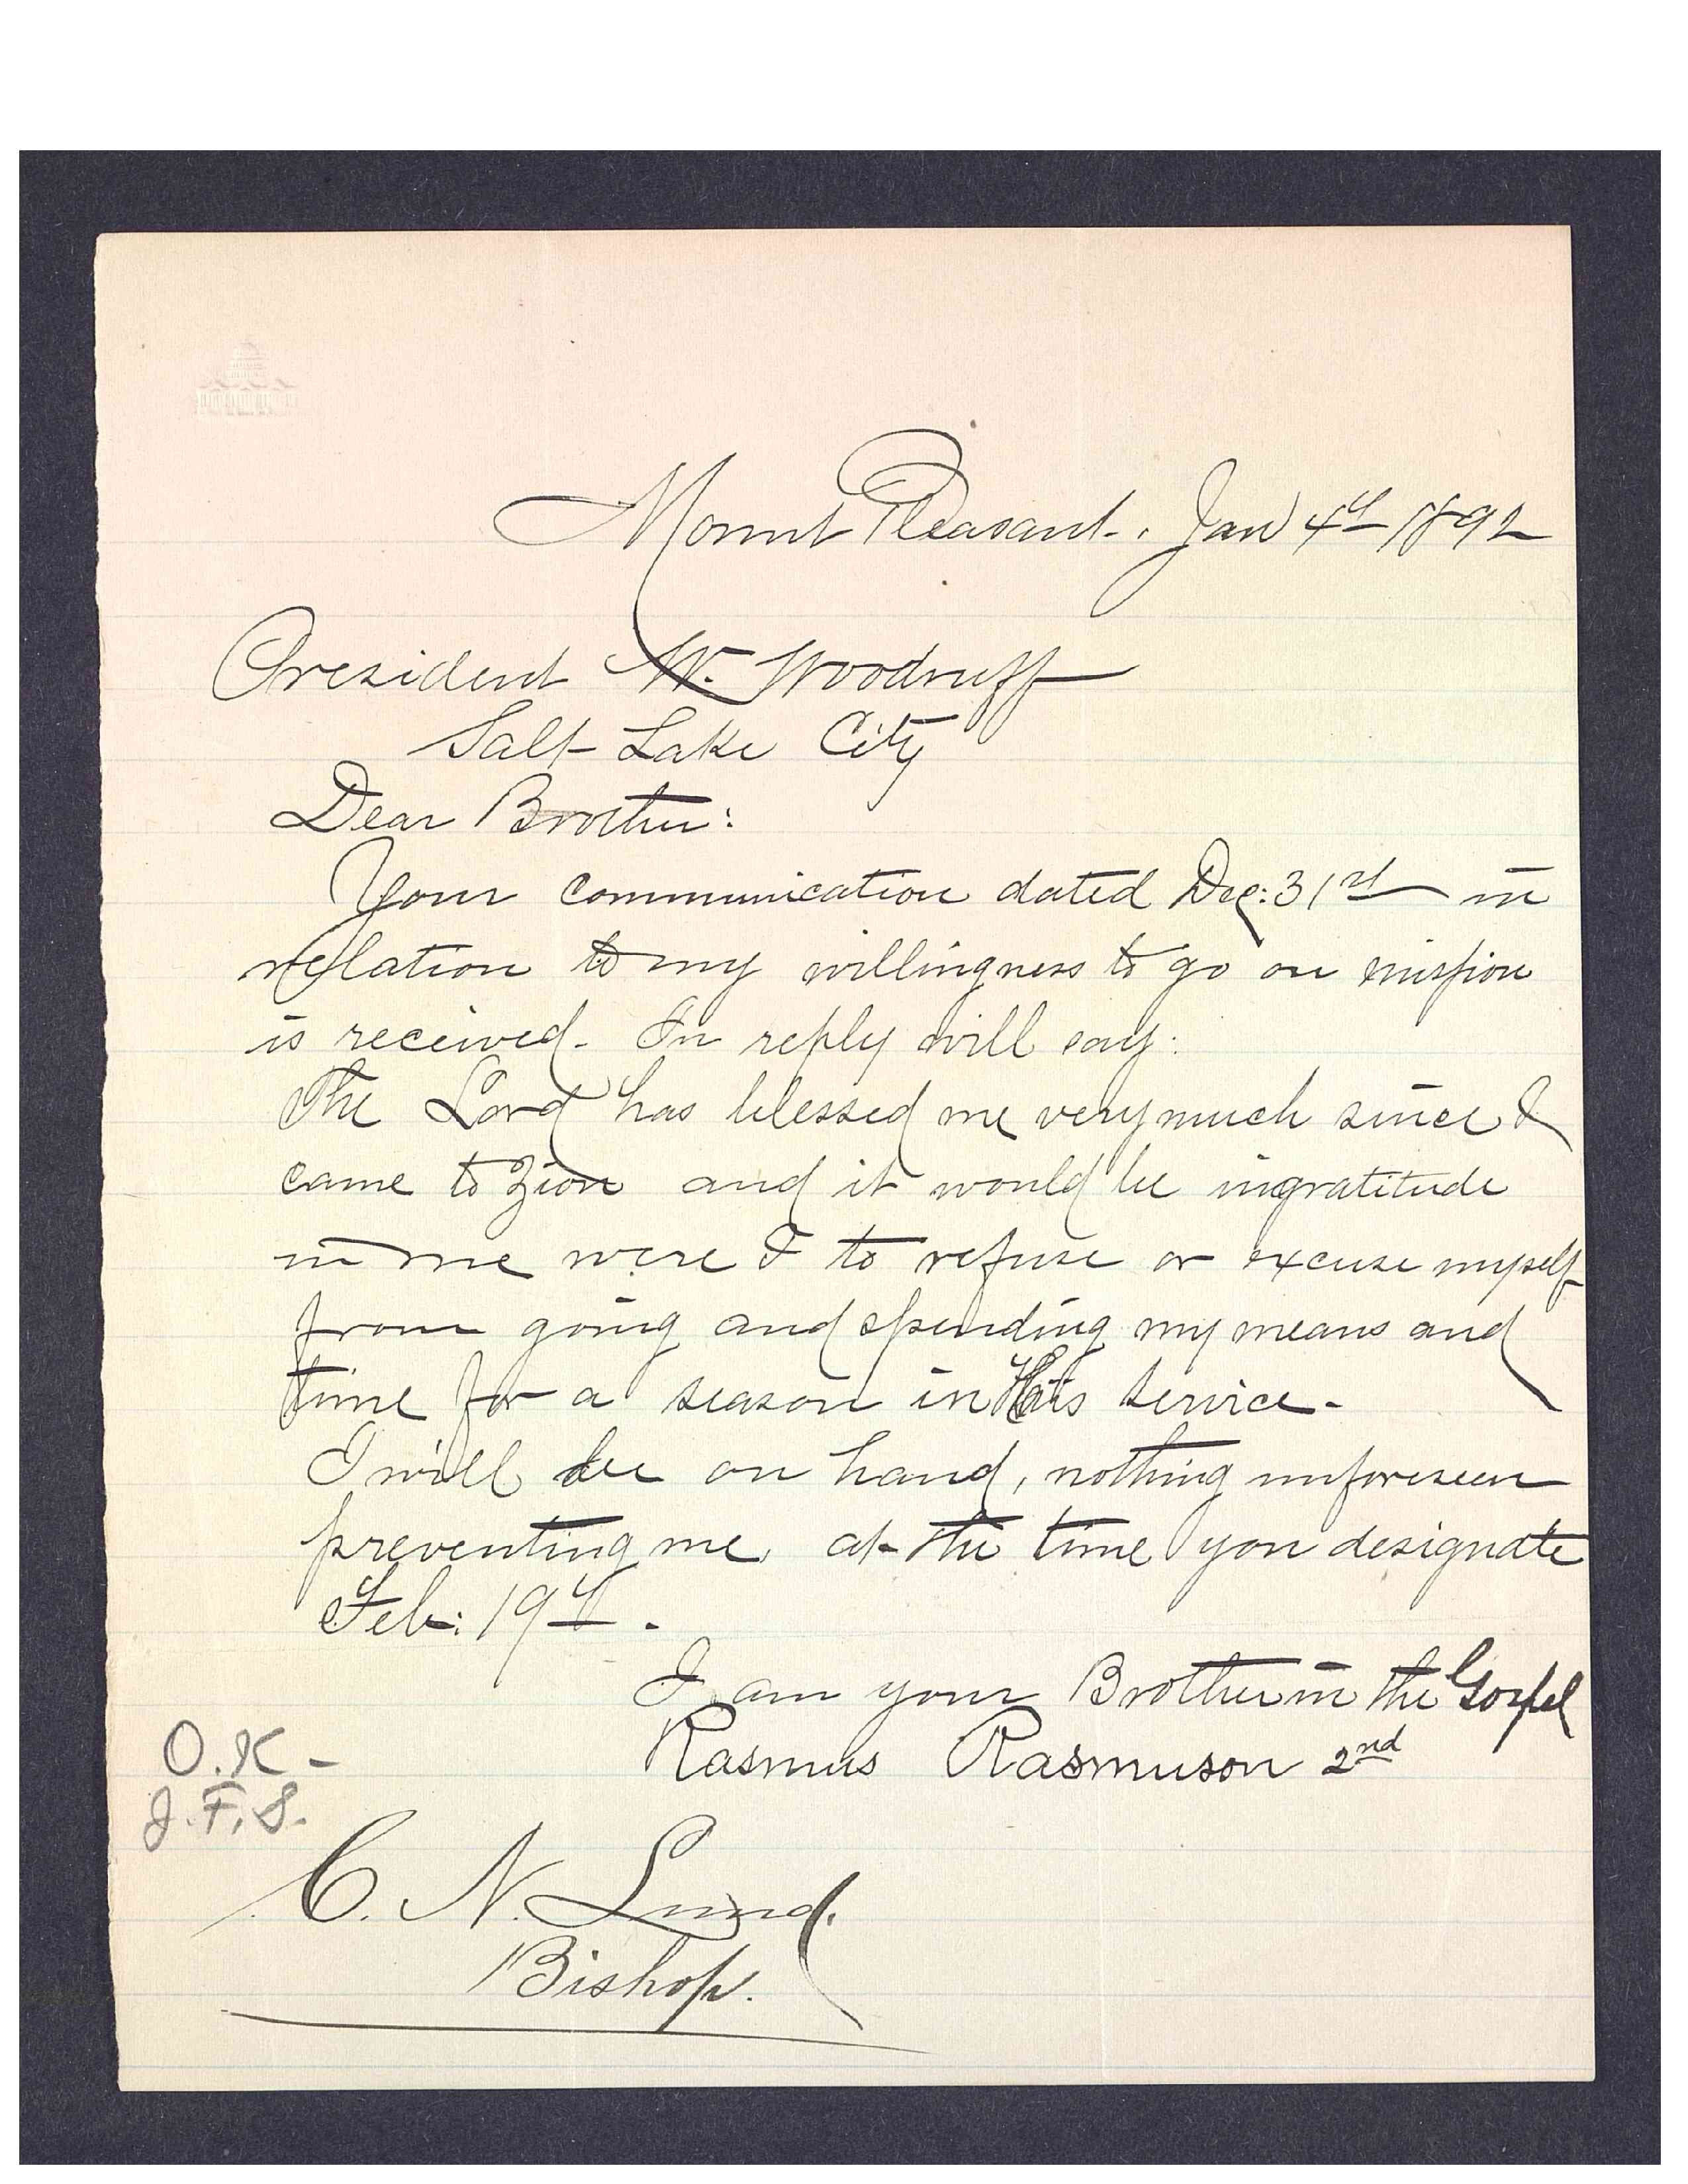 Mount Pleasant. Jan 4th 1892
President W. Woodruff
Salt Lake City
Dear Brother:
Your communication dated Dec: 31st in
relation to my willingness to go on mission
is received. In reply will say:
The Lord has blessed me very much since I
came to Zion and it would be ingratitude
in me were I to refuse or excuse myself
from going and spending my means and
time for a season in His service.
I will be on hand, nothing unforeseen
preventing me, at the time you designate
Feb: 19th.
I am your Brother in the Gospel
Rasmus Rasmuson 2nd
O.K -
J.F.S.
C. N. Lund.
Bishop.